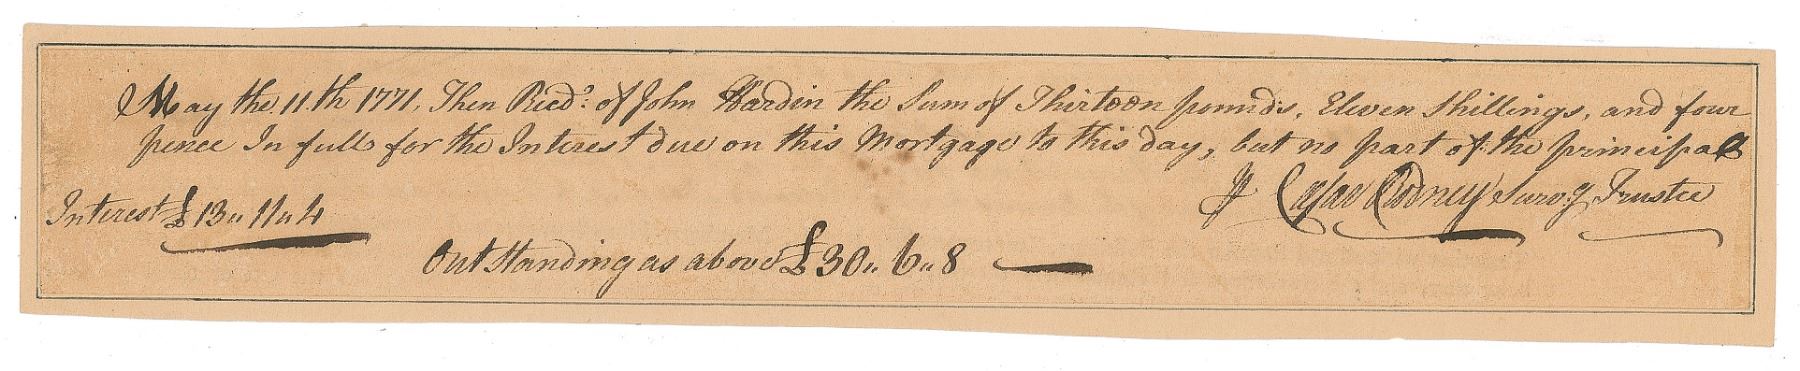 May the 11th 1771, Then Recd. of John Hardin the Sum of Thirteen pounds, Eleven Shillings, and four
pence In full for the Interest due on this Mortgage to this day, but no part of the principal
Interest £13 „ 11 „ 4
Caesar Rodney Survg Trustee
Outstanding as above £30 „ 6 „ 8